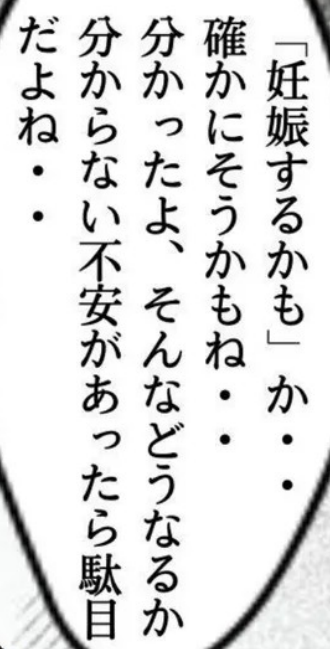 「妊娠するかも」か・・
確かにそうかもね・・
分かったよ、そんなどうなるか
分からない不安があったら駄目
だよね・・